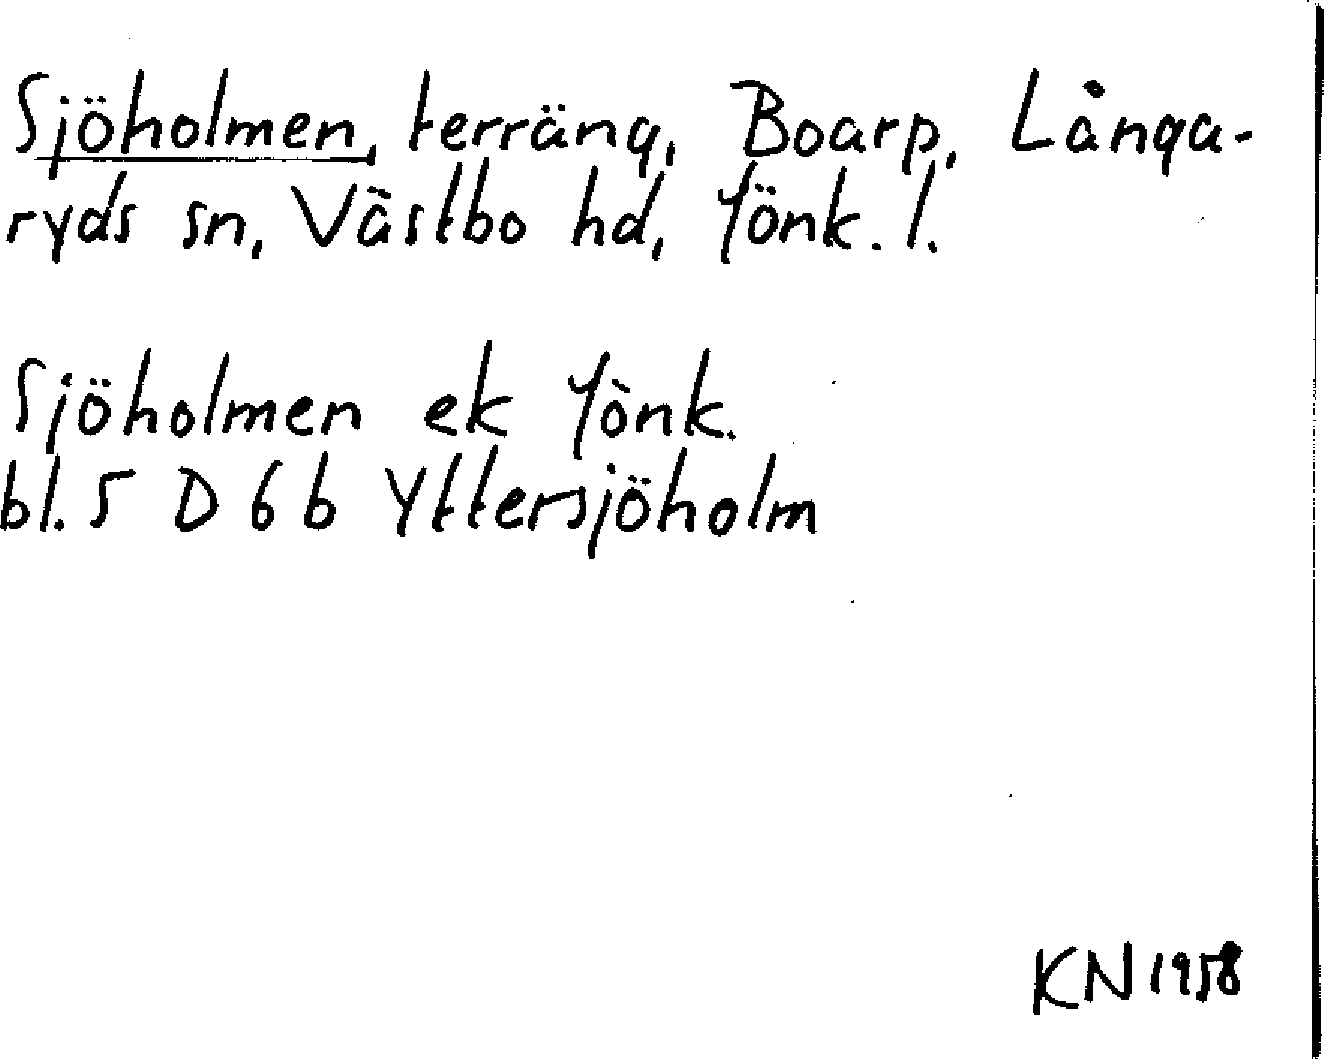 Sjöholmen, terräng, Boarp, Långa-
ryds sn, Västbo hd, Jönk. l.
Sjöholmen ek Jönk.
bl. 5 D 6 b Yttersjöholm
KN 1958